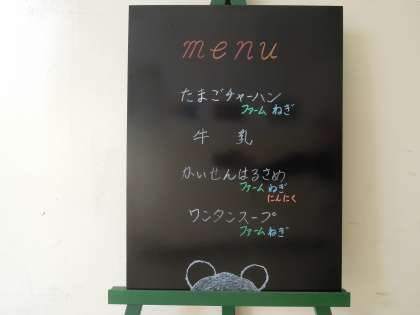 menu
たまごチャーハン
ファーム ねぎ
牛乳
かいせんはるさめ
ファーム ねぎ
にんにく
ワンタンスープ
ファーム ねぎ